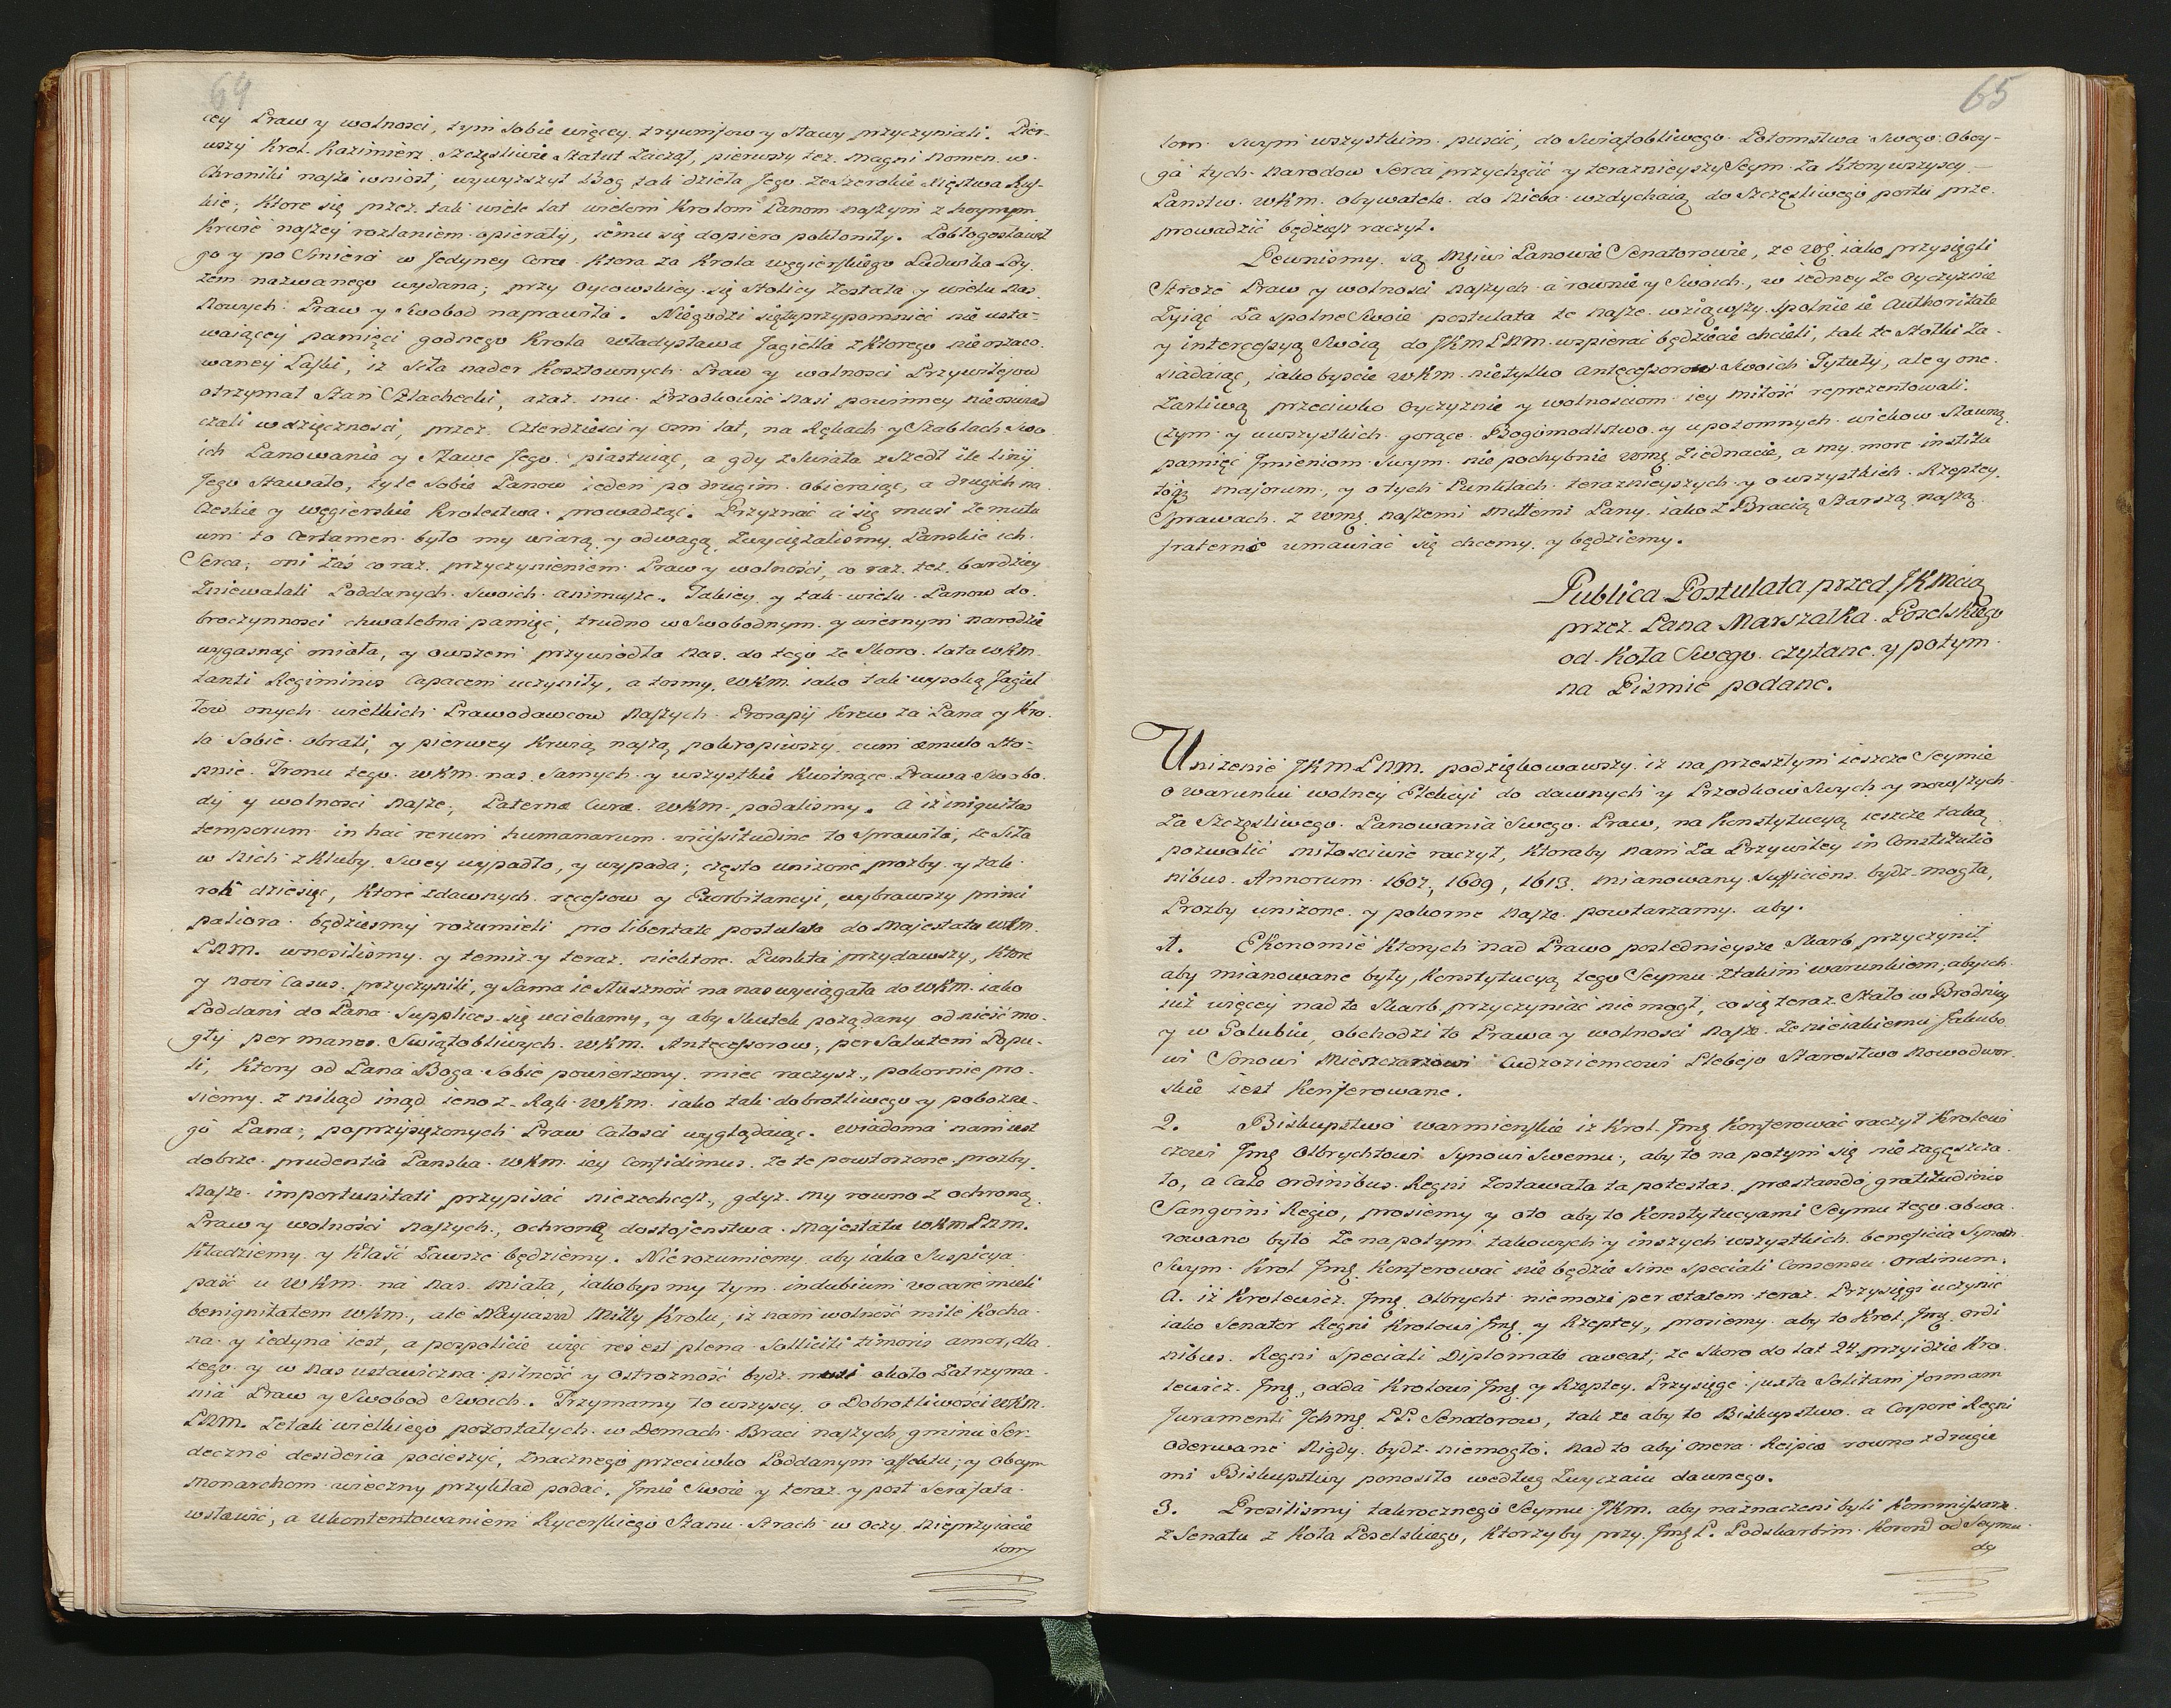 64
cey Praw y wolnosci, tym sobie więcey tryumfow y sławy przyczyniali. Pier-
wszy Krol Kazimierz Szczęsliwie Statut Zaczął, pierwszy też Magni Nomen w
Chroniki nasze wniosł, wywyższył Bog tak dzieła Jego że Szerokie Xięstwa Rus-
kie, Ktore się przez tak wiele lat wielom Krolom Panom naszym z hoynym
Krwie naszey rozlaniem opierały, iemu się dopiero pokłoniły. Pobłogosławił
go y po Smierci w Jedyney Corce Ktora za Krola węgierskiego Ludwika Loy
zem nazwanego wydana, przy oycowskiey się stolicy Została y wielu nas
Nowych Praw y Swobod naprawiła. Niegodzi się też przypomnieć nie usta-
waiącey pamięci godnego Krola Władysława Jagiełła z Ktorego nie oszaco-
waney Łaski, iż siła nader Kosztownych Praw y wolnosci Przywilejow
otrzymał Stan Szlachecki, a zaz mu Przodkowie Nasi powinney nie oswiad
czali wdzięcznosci, przez Czterdziesci y osm lat, na Rękach y Szablach Swo
ich Panowanie y Sławe Jego piastuiąc, a gdy z Swiata zszedł ile linij
Jego stawało, tyle sobie Panow ieden po drugim obieraiąc, a drugich na
Czeskie y węgierskie Krolestwa prowadząc. Przyznać a się musi że mutu
um to Certamen było my wiarą y odwagą Zwyciężalismy Panskie ich
Serca, oni zaś coraz przyczynieniem Praw y wolności, co raz też bardziey
Zniewalali Poddanych Swoich animusze. Takiey y tak wielu Panow do-
broczynnosci chwalebna pamięć, trudno w Swobodnym y wiernym narodzie
wygasnąć miała, y owszem przywiodła nas do tego że Skoro lata WKM.
tanti Regiminis Capacem uczyniły, a tosmy WKM. iako tak wysoką Jagiel
łow onych wielkich Prawodawcow naszych Prosapij Krew za Pana y Kro-
la sobie obrali, y pierwey Krwią naszą pokropiwszy cum æmulo sto-
pnie Tronu tego WKM. nas samych y wszystkie Kwitnące Prawa Swobo-
dy y wolnosci nasze, Paternæ Curæ WKM. podalismy. A iż iniquitas
temporum in hac rerum humanarum vicissitudine to sprawiła, że Siła
w nich z Kluby swey wypadło, y wypada; często uniżone prozby y tak
rok dziesięc, Ktore z dawnych recessow y Exorbitancyi, wybrawszy princi
paliora będziesmy rozumieli pro libertate postulata do Majestatu WKM.
PNM. wnosilismy y temiz y teraz niektore Punkta przydawszy, Ktore
y novi Casus przyczynili, y sama ie słuszność na nas wyciągała do WKM. iako
Poddani do Pana Supplices się uciekamy, y aby skutek pożądany odnieść mo-
gły per manes Swiątobliwych WKM. Antecessorow, per Salutem Popu-
li, Ktory od Pana Boga sobie powierzony miec raczysz, pokornie pro-
siemy z nikąd inąd ieno z Rąk WKM. iako tak dobrotliwego y pobożne-
go Pana, poprzysiężonych Praw Całosci wyglądaiąc. Wiadoma nam iest
dobrze prudentia Panska WKM. iey Confidimus że te powtorzone prozby
nasze importunitati przypisać niezechcesz, gdyz my rowno z ochroną
Praw y wolności naszych, ochronę dostojenstwa Majestatu WKM PNM.
Kładziemy y Kłaść Zawsze będziemy. Nierozumiemy aby iaka Suspicya
paść u WKM. na nas miała, iakobysmy tym in dubium vocare mieli
benignitatem WKM., ale Nayiasn Miłły Krolu, iż nam wolność mile Kocha-
na y iedyna iest, a pospolicie więc res est plena Solliciti timoris amor, dla
tego y w nas ustawiczna pilność y ostrożność bydz musi około Zatrzyma-
nia Praw y Swobod Swoich. Trzymamy to wszyscy o Dobrotliwości WKM.
PNM. Że tak wielkiego pozostałych w Domach Braci naszych gminu Ser-
deczne desideria pocieszyć, Znacznego przeciwko Poddanym affektu, y Obcym
Monarchom wieczny przykład podać. Jmie Swoie y teraz y post Sera fata
wsławić, a ukontentowaniem Rycerskiego Stanu strach w oczy nieprzyiacie
lom
65
lom swym wszystkim puscić, do Swiątobliwego Potomstwa Swego oboy-
ga tych Narodow Serca przychęcić y teraznieyszy Seym za Ktory wszyscy
Panstw WKM. obywatele do Nieba wzdychaią do Szczęsliwego portu prze-
prowadzić będziesz raczył.
Pewnismy są Mciwi Panowie Senatorowie, że WM. iako przysięgli
Stroże Praw y wolności naszych a rownie y Swoich, w iedney że oyczyznie
Żyiąc Za spolne Swoie postulata te nasze wziąwszy społnie ie Authoritate
y intercessyą Swoią do JKM PNM. wspierać będziecie chcieli, tak te Stołki Za-
siadaiąc, iakobyscie WKM. nietylko antecessorow Swoich Tytuły, ale y one
Żarliwą przeciwko oyczyznie y wolnosciom iey miłość reprezentowali.
Czym y u wszystkich gorące Bogomodlstwo y u potomnych wiekow Sławną
pamięć Jmieniom Swym nie pochybnie WMM. Ziednacie, a my more institu
toq majorum, y o tych Punktach teraznieyszych y o wszystkich Rzeptey
Sprawach z WMM. naszemi Miłłemi Pany iako z Bracią Starszą naszą
fraterne umawiać się chcemy y będziemy.
Publica Postulata przed JKMcią
przez Pana Marszałka Poselskiego
od Koła Swego czytane y potym
na Pismie podane.
Uniżenie JKM PNM. podziękowawszy iż na przeszłym ieszcze Seymie
o warunku wolney Elekcyi do dawnych y Przodkow Swych y nowszych
Za Szczęsliwego Panowania Swego Praw, na Konstytucyą ieszcze taką
pozwolić miłosciwie raczył, Ktoraby nam Za Przywiley in Constitutio
nibus Annorum 1607, 1609, 1613. mianowany Sufficiens bydz mogła,
Prozby uniżone y pokorne nasze powtarzamy aby.
1. Ekonomie Ktorych nad Prawo poslednieysze Skarb przyczynił
aby mianowane były, Konstytucyą tego Seymu z takim warunkiem, abysch
iuż więcey nad te Skarb przyczyniać nie mogł, co się teraz stało w Brodnicy
y w Golubiu, obchodzi to Prawa y wolnosci nasze że nieiakiemu Jakubo
wi Sonowi Mieszczanowi Cudzoziemcowi Plebejo Starostwo Nowodwor
skie iest Konferowane.
2. Biskupstwo warmienskie iż Krol Jmę Konferować raczył Krolewi
czowi Jmę Olbrychtowi Synowi Swemu, aby to na potym się nie zagęszcza
ło, a całe ordinibus Regni Zostawała ta potestas præstando gratitudinis
Sangvini Regio, prosiemy y oto aby to Konstytucyami Seymu tego obwa
rowano było że napotym takowych y inszych wszystkich beneficia Synom
Swym Krol Jmę Konferować nie będzie sine Speciali Consensu ordinum.
A. iż Krolewicz Jmę Olbrycht niemoże per ætatem teraz Przysięgi uczynić
iako Senator Regni Krolowi Jmę y Rzeptey, prosiemy aby to Krol Jmę ordi
nibus Regni Speciali Diplomate caveat, że Skoro do lat 24 przyidzie Kro
lewicz Jmę, odda Krolowi Jmę y Rzeptey Przysięge juxta Solitam formam
Juramenti Jchmę PP. Senatorow, tak że aby to Biskupstwo a Corpore Regni
oderwane Nigdy bydz niemogło. Nad to aby onera Reipcæ rowno z drugie
mi Biskupstwy ponosiło według Zwyczaiu dawnego.
3. Prosilismy takrocznego Seymu JKM. aby naznaczeni byli Kommissarze
z Senatu z Koła Poselskiego, Ktorzyby przy Jmę P. Podskarbim Koron̄ od Seymu
do